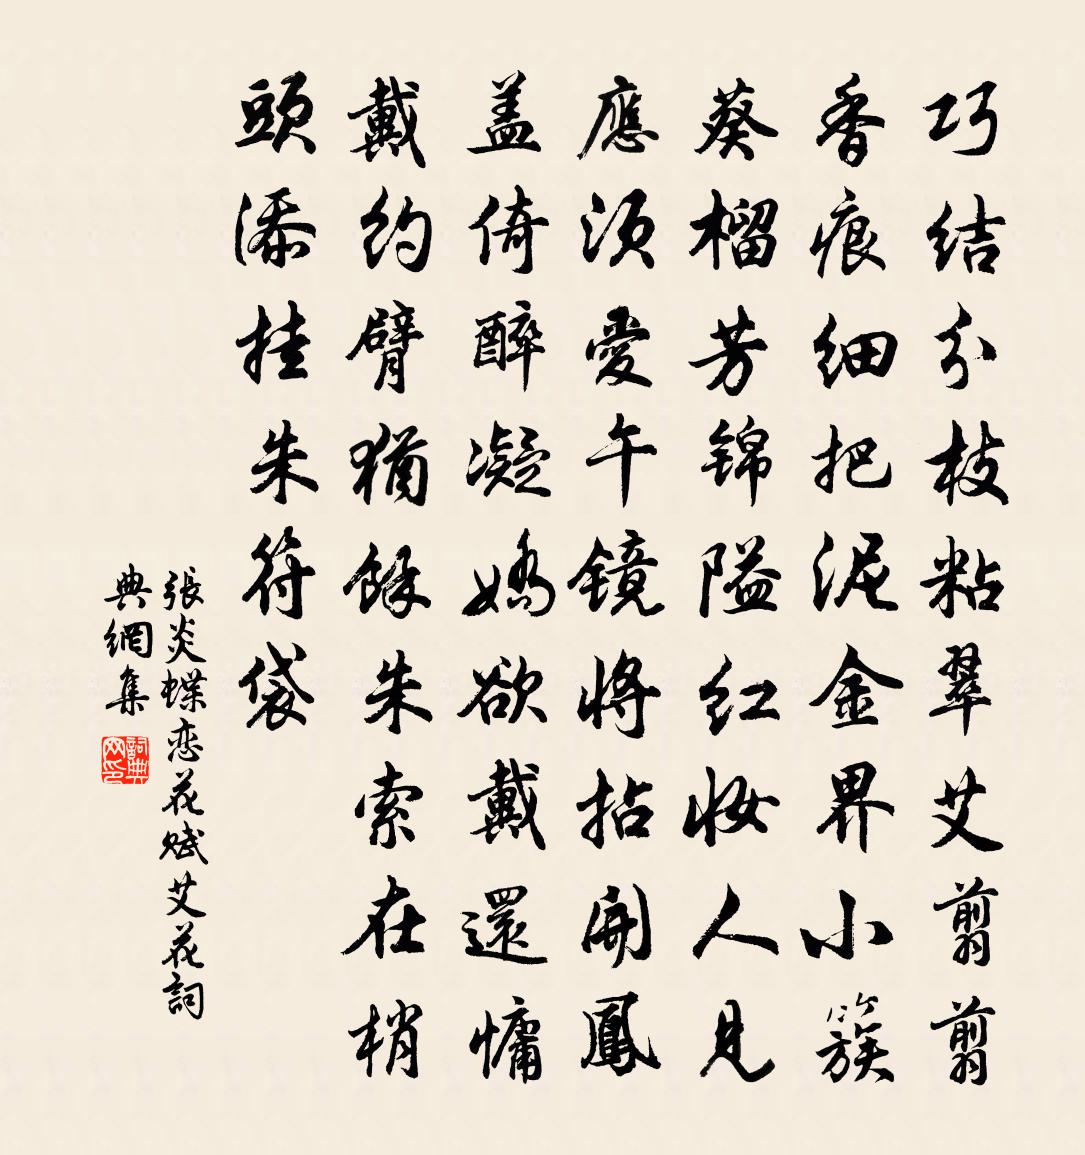 巧结分枝粘翠艾翦翦
香痕细把泥金界小簇
葵榴芳锦隘红妆人见
應须愛午镜将拈開鳳
盖倚醉凝嬌欲戴還慵
戴约臂猶餘朱索在梢
頭添挂朱符袋
張炎蝶恋花赋艾花詞
典網集
詞典网印